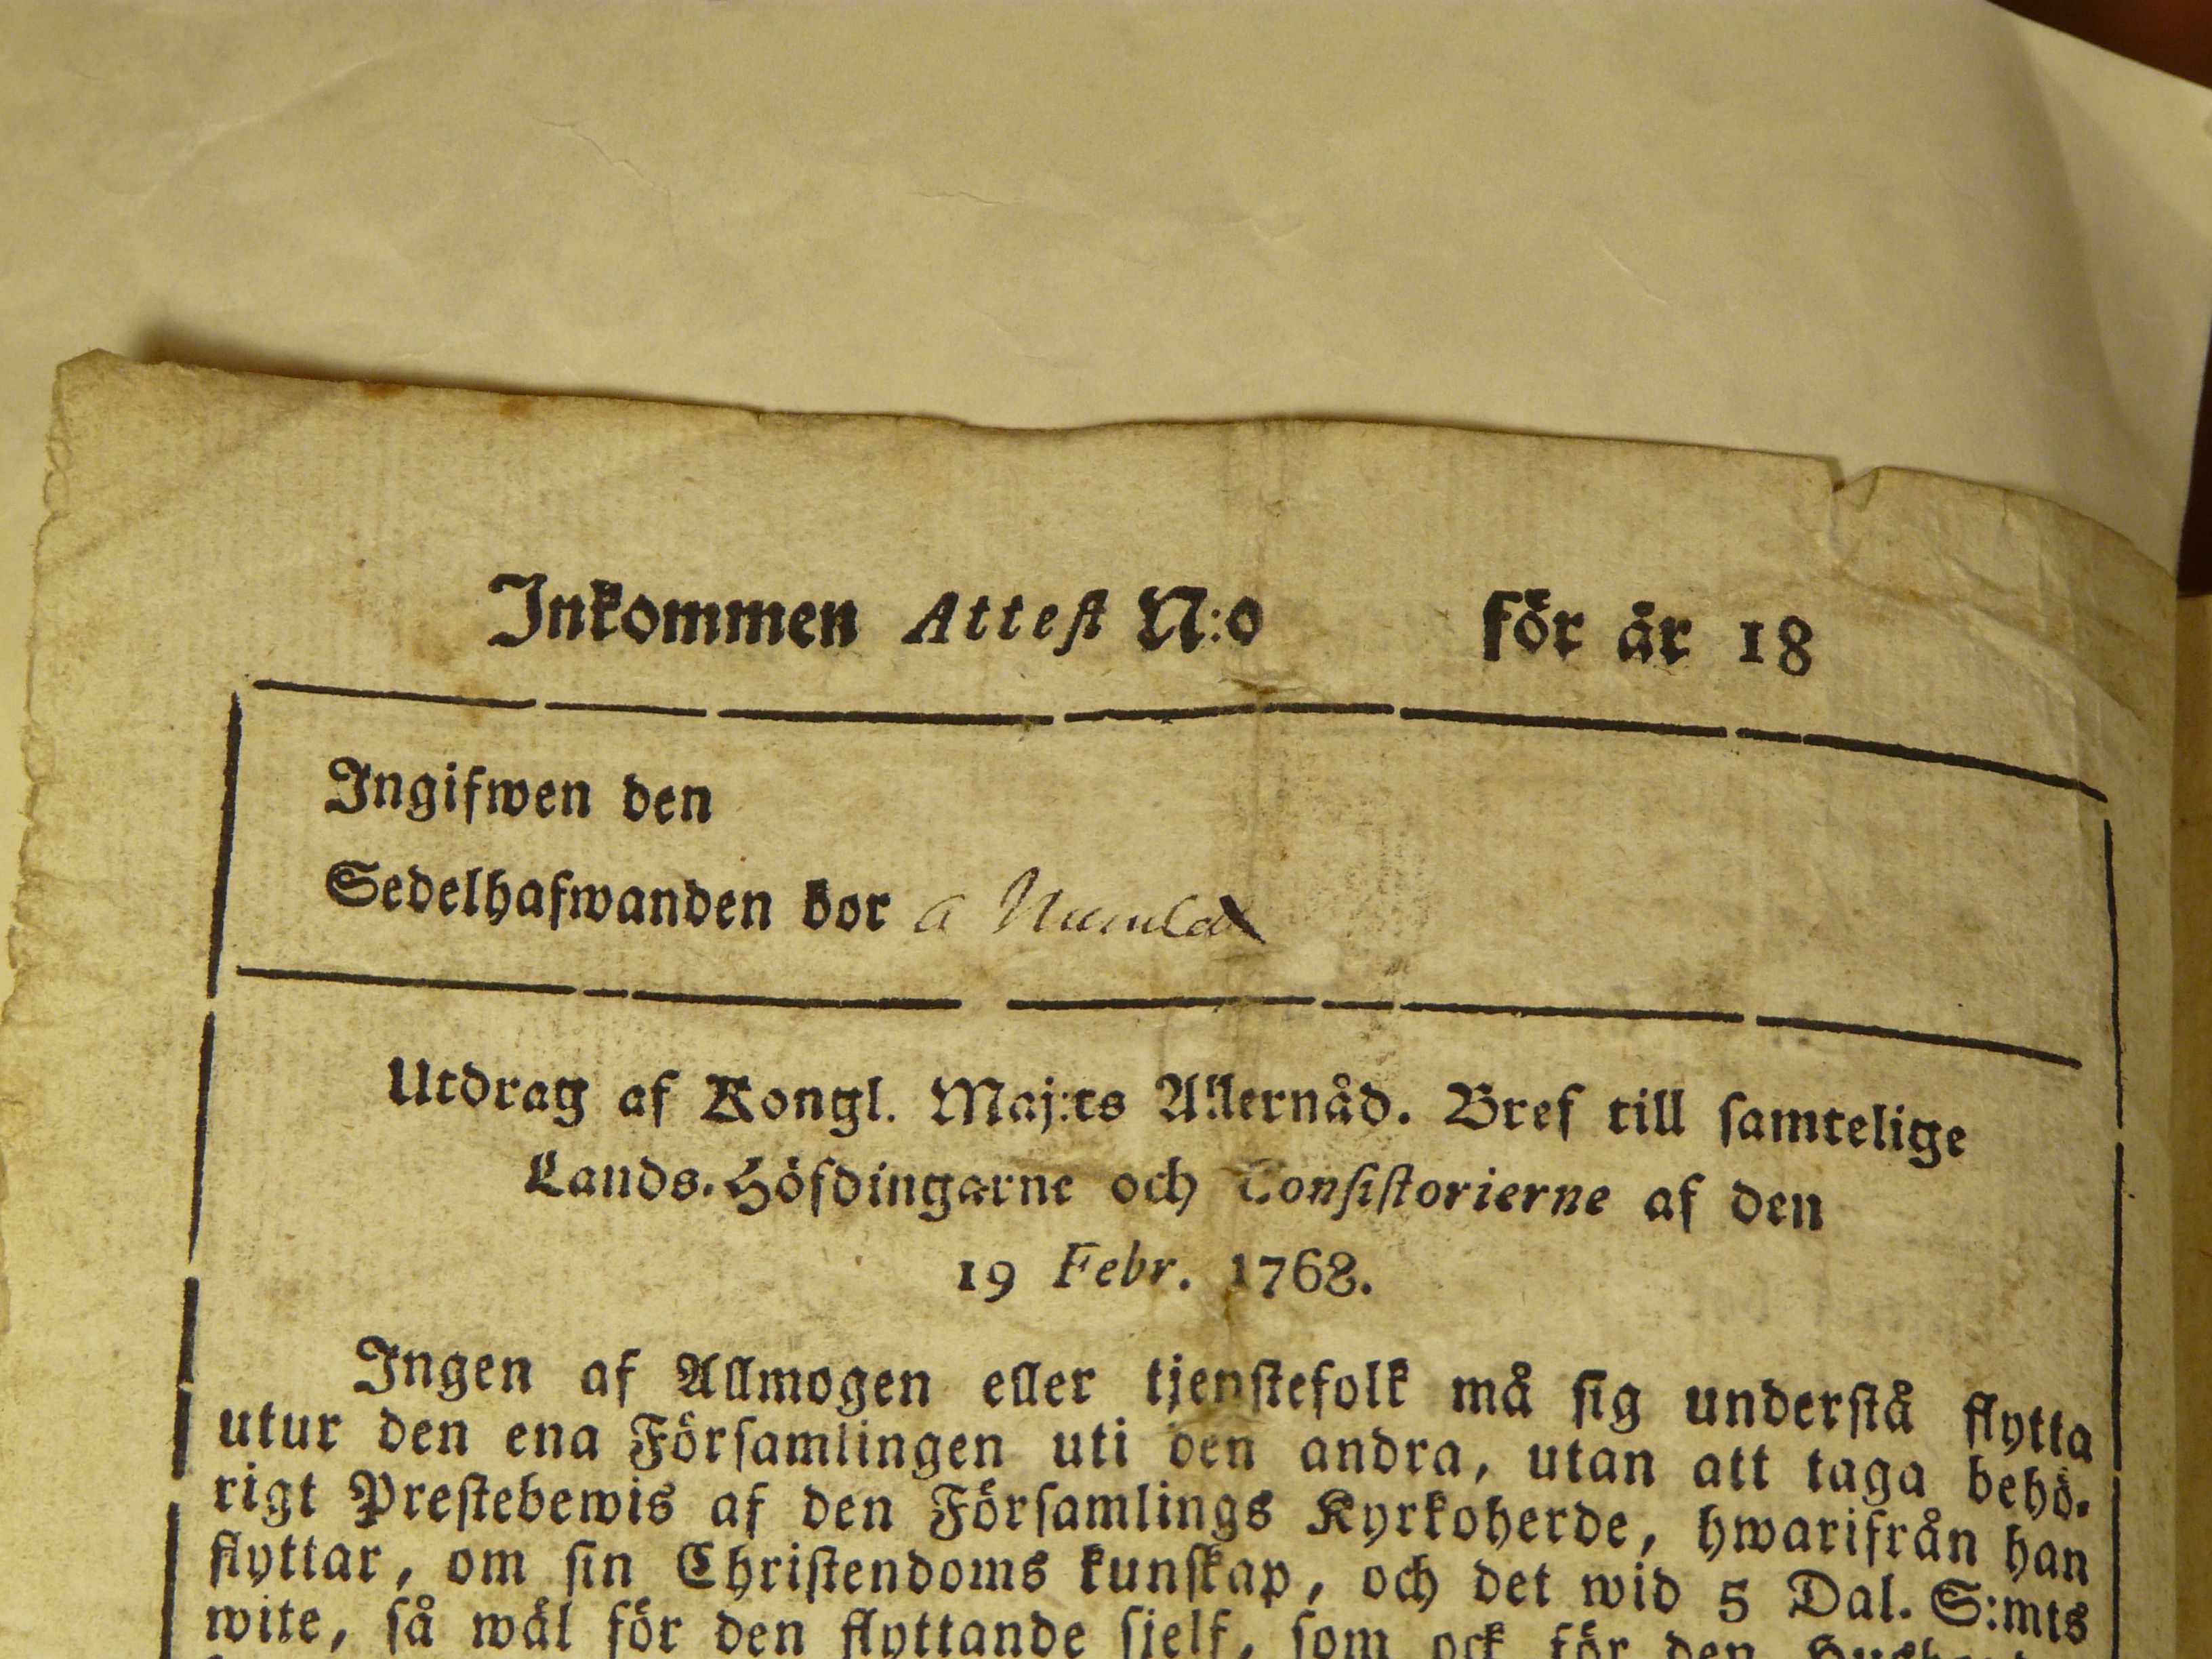 Inkommen Attest N:o för år 18
Ingifwen den
Sedelhafwanden bor a
Utdrag af Kongl. Maj:ts Allernåd. Bref till samtelige
Lands-Höfdingarne och Consistorierne af den
19 Febr. 1768.
Ingen af Allmogen eller tjenstefolk må sig understå flytta
utur den ena Församlingen uti den andra, utan att taga behö-
rigt Prestebewis af den Församlings Kyrkoherde, hwarifrån han
flyttar, om sin Christendoms kunskap, och det wid 5 Dal. S:mts
wite, så wäl för den flyttande sjelf, som ock för den